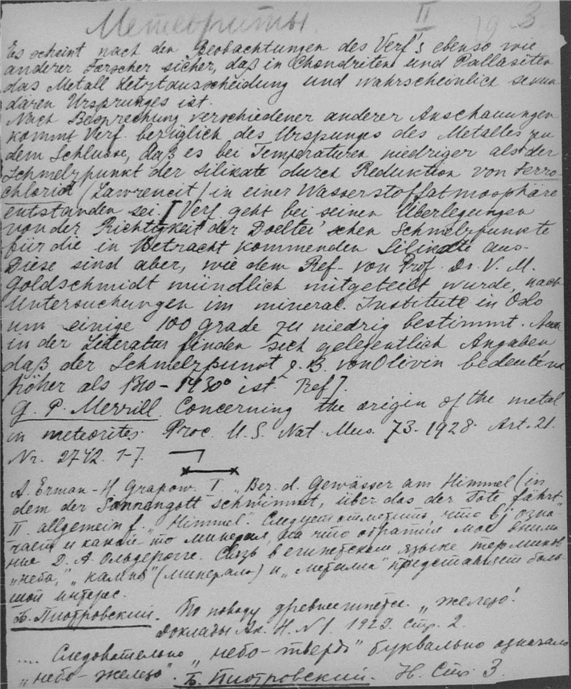 Метеориты. II 3
Es scheint nach den Beobachtungen des Verf's ebenso wie
anderer Forscher sicher, daß in Chondriten und Pallasiten
das Metall letztausscheidung und wahrscheinlich sekun
dären Ursprunges ist.
Nach Besprechung verschiedener anderer Anschauungen
kommt Verf. bezüglich des Ursprungs des Metalles zu
dem Schlusse, daß es bei Temperaturen niedriger als der
Schmelzpunkt der Silikate durch Reduktion von Ferro-
chlorid (Lawrencit) in einer Wasserstoffatmosphäre
entstanden sei. [Verf. geht bei seinen Überlegungen
von der Richtigkeit der Doelter'schen Schmelzpunkte
für die in Betracht kommenden Silikate aus.
Diese sind aber, wie dem Ref. von Prof. Dr. V. M.
Goldschmidt mündlich mitgeteilt wurde, nach
Untersuchungen im mineral. Institute in Oslo
um einige 100 Grade zu niedrig bestimmt. Auch
in der Literatur finden sich gelegentlich Angaben
daß der Schmelzpunkt z. B. von Olivin bedeutend
höher als 1310-1430° ist Ref].
G. P. Merrill. Concerning the origin of the metal
in meteorites. Proc. U. S. Nat. Mus. 73. 1928. Art. 21.
Nr. 2742. 1-7.
A. Erman - H. Grapow. I "Bez. d. Gewässer am Himmel (in
dem der Sonnengott schwimmt, über das der Tote fährt
II. allgemein f. "Himmel". Следует отметить, что bj3 озна-
чает и какой то минерал, на что обратил мое внима
ние Д. А. Ольдерогге. Связь в египетском языке термина
„небо", „камня" (минерала) и „металла" представляет боль
шой интерес.
Б. Пиотровский. По поводу древнеегипетск. „железо".
Доклады Ак. Н. №1. 1929. Стр. 2.
.... Следовательно „небо-твердь" буквально означало
„небо-железо". Б. Пиотровский. Н. Стр. 3.